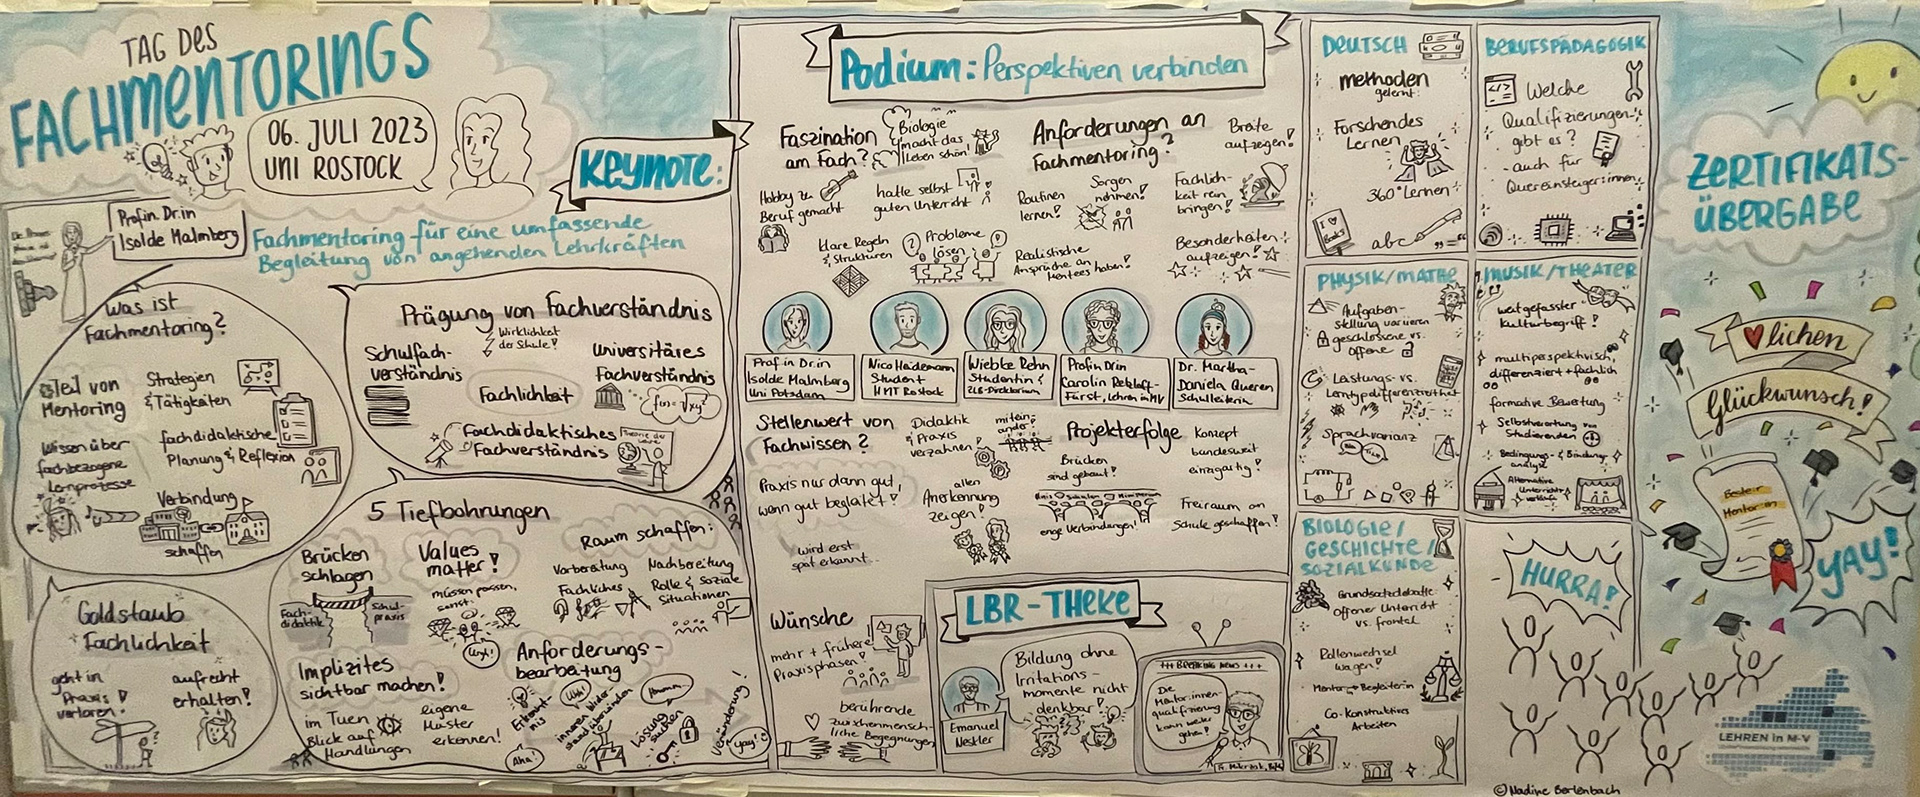 TAG DES
FACHMENTORINGS
06. JULI 2023
UNI ROSTOCK
KEYNOTE:
Prof.in Dr.in
Isolde Malmberg
Fachmentoring für eine umfassende
Begleitung von angehenden Lehrkräften
Was ist
Fachmentoring?
Teil von
Mentoring
Strategien
& Tätigkeiten
Wissen über
fachbezogene
Lernprozesse
fachdidaktische
Planung & Reflexion
Verbindung
schaffen
Prägung von Fachverständnis
Wirklichkeit
der Schule!
Schulfach-
verständnis
Fachlichkeit
Universitäres
Fachverständnis
Fachdidaktisches
Fachverständnis
Goldstaub
Fachlichkeit
geht in
Praxis
verloren!
aufrecht
erhalten!
5 Tiefbohrungen
Brücken
schlagen
Fach-
didaktik
Schul-
praxis
Values
matter!
müssen passen,
sonst:
Urgh!
Raum schaffen:
Vorbereitung
Fachliches
Nachbereitung
Rolle & soziale
Situationen
Implizites
sichtbar machen!
im Tuen
Blick auf
Handlungen
eigene
Muster
erkennen!
Anforderungs-
bearbeitung
Erkennt-
nis
Aha!
Uhh!
inneren Wider-
stand überwinden
Hmmm
Lösung
suchen
Veränderung!
yay!
Podium: Perspektiven verbinden
Faszination
am Fach?
Biologie
macht das
Leben schön!
Hobby zu
Beruf gemacht
hatte selbst
guten Unterricht
klare Regeln
& Strukturen
Probleme
lösen
Anforderungen an
Fachmentoring?
Breite
aufzeigen!
Routinen
lernen!
Sorgen
nehmen!
Fachlich-
keit rein
bringen!
Realistische
Ansprüche an
Mentees haben!
Besonderheiten
aufzeigen!
Prof.in Dr.in
Isolde Malmberg
Uni Potsdam
Nico Heidemann
Student
HMT Rostock
Wiebke Rehn
Studentin &
ZLB-Direktorium
Prof.in Dr.in
Carolin Retzlaff-
Fürst, Lehren in MV
Dr. Martha-
Daniela Queren
Schulleiterin
Stellenwert von
Fachwissen?
Didaktik
& Praxis
verzahnen!
mitein-
ander!
Praxis nur dann gut,
wenn gut begleitet!
allen
Anerkennung
zeigen!
wird erst
spät erkannt...
Projekterfolge
Konzept
bundesweit
einzigartig!
Brücken
sind gebaut!
enge Verbindungen!
Freiraum an
Schule geschaffen!
Wünsche
mehr + frühere
Praxisphasen!
berührende
zwischenmensch-
liche Begegnungen
LBR-THEKE
Emanuel
Nestler
Bildung ohne
Irritations-
momente nicht
denkbar!
+++ BREAKING NEWS +++
Die
Mentor:innen-
qualifizierung
kann weiter
gehen!
DEUTSCH
methoden
gelernt:
Forschendes
Lernen
360° Lernen
I ♥
Books
abc
BERUFSPÄDAGOGIK
Welche
Qualifizierungen
gibt es?
- auch für
Quereinsteiger:innen
PHYSIK/MATHE
Aufgaben-
stellung variieren
geschlossene vs.
offene
Leistungs- vs.
Lerntypdifferenziertheit
Sprachvarianz
MUSIK/THEATER
weitgefasster
Kulturbegriff!
multiperspektivisch,
differenziert + fachlich
formative Bewertung
Selbstwertung von
Studierenden
Bedingungs- & Bindungs-
analyse
Alternative
BIOLOGIE/
GESCHICHTE/
SOZIALKUNDE
Grundsatzdebatte
offener Unterricht
vs. frontal
Rollenwechsel
wagen!
Mentor → Begleiter:in
Co-Konstruktives
Arbeiten
HURRA!
ZERTIFIKATS-
ÜBERGABE
♥lichen
Glückwunsch!
Beste:r
Mentor:in
YAY!
LEHREN in M-V
© Nadine Bertenbach